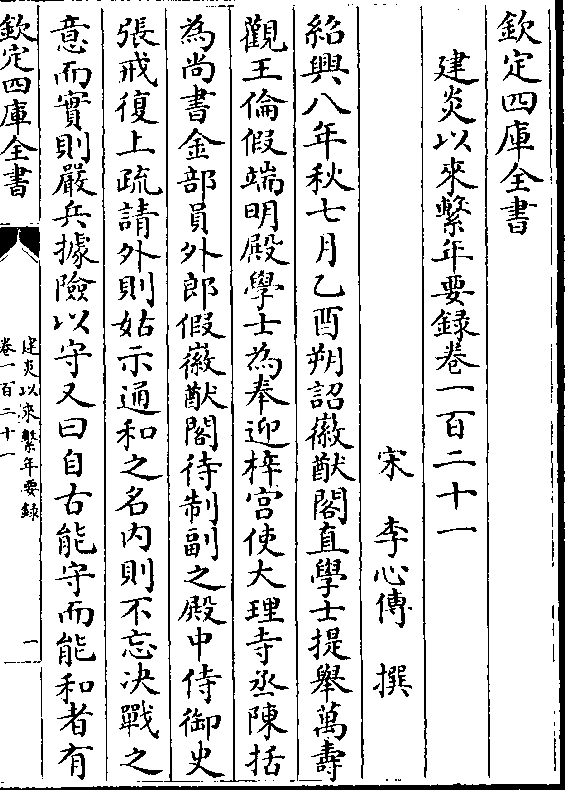 欽定四庫全書
建炎以來繫年要錄卷一百二十一
宋 李心傳 撰
紹興八年秋七月乙酉朔詔徽猷閣直學士提舉萬壽
觀王倫假端明殿學士為奉迎梓宫使大理寺丞陳括
為尚書金部員外郎假徽猷閣待制副之殿中侍御史
張戒復上疏請外則姑示通和之名内則不忘決戰之
意而實則嚴兵據險以守又曰自古能守而能和者有
欽定四庫全書
建炎以來繫年要錄
卷一百二十一
一